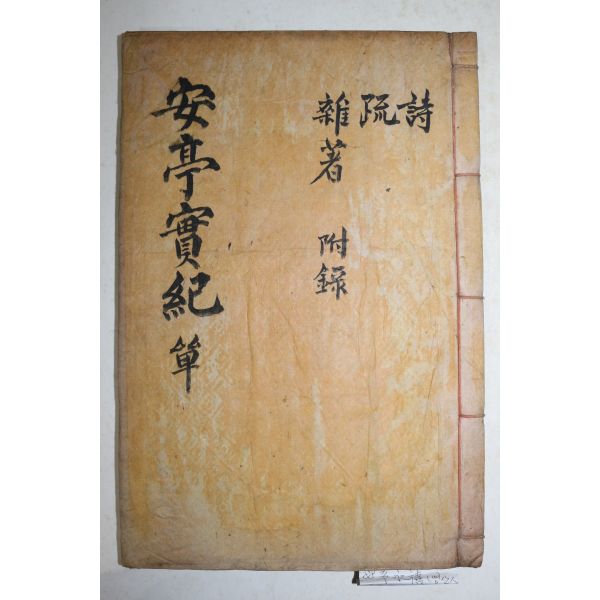 詩
疏
雜著 附錄
安亭實紀 單